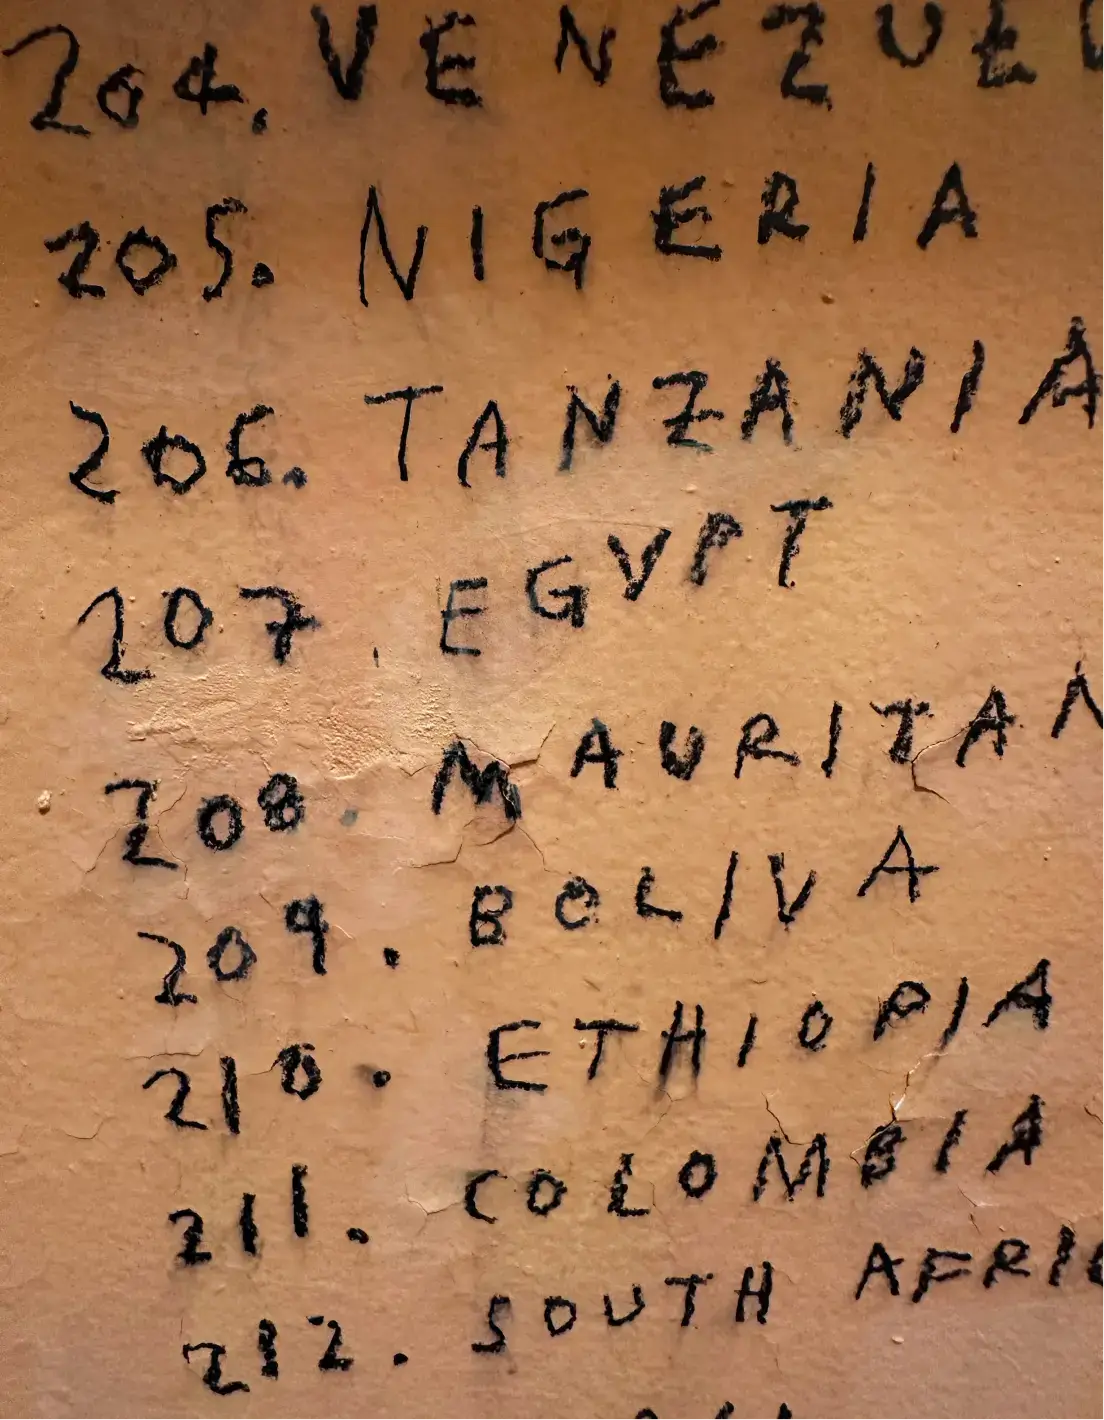 204. VENEZUEL
205. NIGERIA
206. TANZANIA
207. EGVPT
208. MAURITAN
209. BOLIVA
210. ETHIOPIA
211. COLOMBIA
212. SOUTH AFRIC